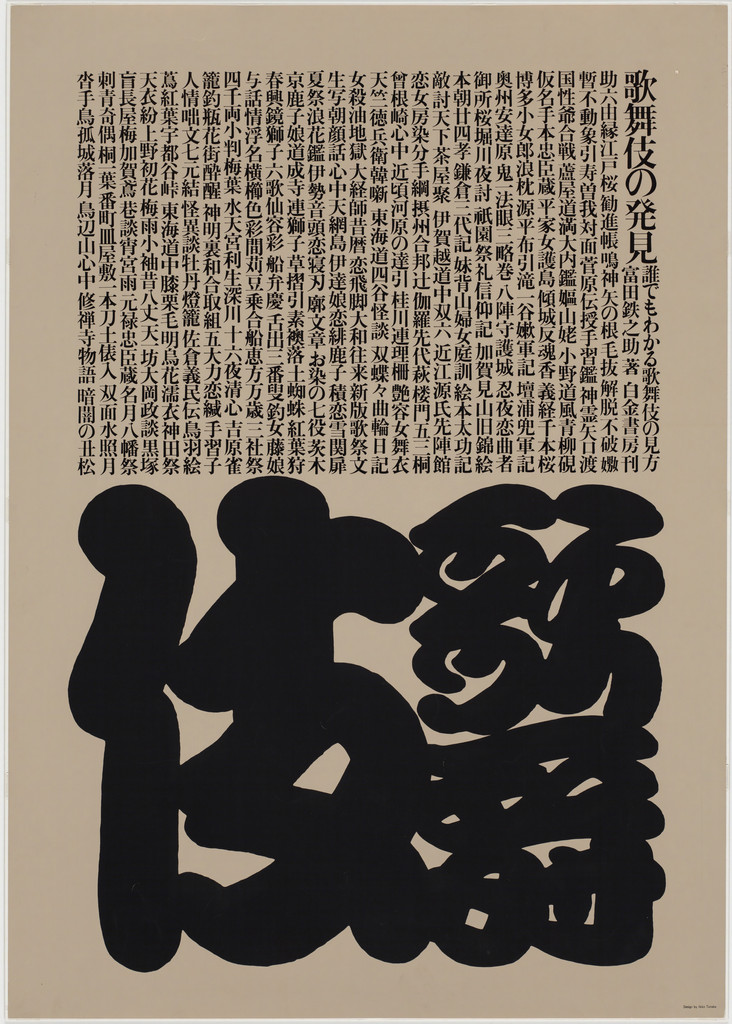 歌舞伎の発見 誰でもわかる歌舞伎の見方
富田鉄之助 著 白金書房刊
助六由縁江戸桜 勧進帳 鳴神 矢の根 毛抜 解脱 不破 嫐
暫 不動 象引 寿曽我対面 菅原伝授手習鑑 神霊矢口渡
国性爺合戦 蘆屋道満大内鑑 嫗山姥 小野道風青柳硯
仮名手本忠臣蔵 平家女護島 傾城反魂香 義経千本桜
博多小女郎浪枕 源平布引滝 一谷嫩軍記 壇浦兜軍記
奥州安達原 鬼一法眼三略巻 八陣守護城 忍夜恋曲者
御所桜堀川夜討 祇園祭礼信仰記 加賀見山旧錦絵
本朝廿四孝 鎌倉三代記 妹背山婦女庭訓 絵本太功記
敵討天下茶屋聚 伊賀越道中双六 近江源氏先陣館
恋女房染分手綱 摂州合邦辻 伽羅先代萩 楼門五三桐
曾根崎心中 近頃河原の達引 桂川連理柵 艶容女舞衣
天竺徳兵衛韓噺 東海道四谷怪談 双蝶々曲輪日記
女殺油地獄 大経師昔暦 恋飛脚大和往来 新版歌祭文
生写朝顔話 心中天網島 伊達娘恋緋鹿子 積恋雪関扉
夏祭浪花鑑 伊勢音頭恋寝刃 廓文章 お染の七役 茨木
京鹿子娘道成寺 連獅子 草摺引 素襖落 土蜘蛛 紅葉狩
春興鏡獅子 六歌仙容彩 船弁慶 舌出三番叟 釣女 藤娘
与話情浮名横櫛 色彩間苅豆 乗合船恵方万歳 三社祭
四千両小判梅葉 水天宮利生深川 十六夜清心 吉原雀
籠釣瓶花街酔醒 神明裏和合取組 五大力恋緘 手習子
人情咄文七元結 怪異談牡丹燈籠 佐倉義民伝 鳥羽絵
蔦紅葉宇都谷峠 東海道中膝栗毛 明烏花濡衣 神田祭
天衣紛上野初花 梅雨小袖昔八丈 天一坊大岡政談 黒塚
盲長屋梅加賀鳶 巷談宵宮雨 元禄忠臣蔵 名月八幡祭
刺青奇偶 桐一葉 番町皿屋敷 一本刀土俵入 双面水照月
沓手鳥孤城落月 鳥辺山心中 修禅寺物語 暗闇の丑松
歌舞伎